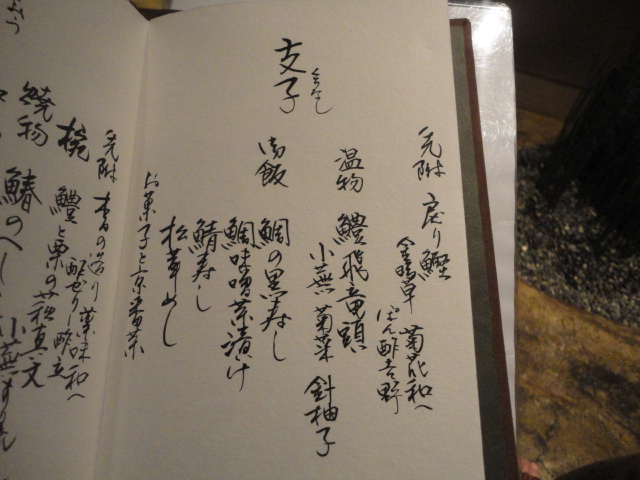 支子
くちなし
先附 戻り鰹
金時草 菊花和へ
ぽん酢吉野
温物 鱧飛竜頭
小蕪 菊菜 針柚子
御飯 鯛の黒寿し
鯛味噌茶漬け
鯖寿し
松茸めし
お菓子と京番茶
先附 李白造り 薬味和へ
酢ゼリー酢立
椀 鱧と栗の萩真丈
焼物 鰆のへし
小蕪すり流